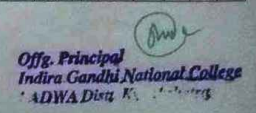 Offg. Principal
Indira Gandhi National College
LADWA Distt. K